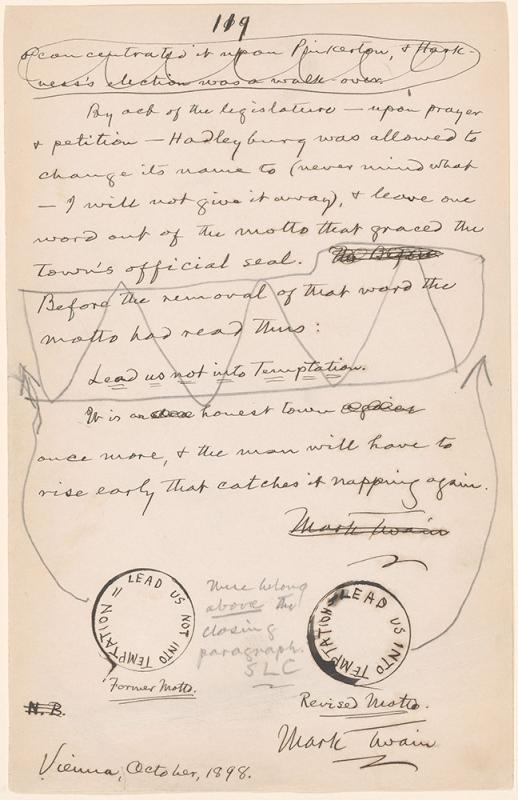 119
& concentrated it upon Pinkerton, & Hark-
ness's election was a walk-over.
By act of the legislature — upon prayer
& petition — Hadleyburg was allowed to
change its name to (never mind what
— I will not give it away), & leave one
word out of the motto that graced the
town's official seal. The Before
Before the removal of that word the
motto had read thus:
Lead us not into Temptation.
It is an honest town
once more, & the man will have to
rise early that catches it napping again.
Mark Twain
LEAD US NOT INTO TEMPTATION
Former Motto.
These belong
above the
closing
paragraph.
SLC
LEAD US INTO TEMPTATION
Revised Motto.
N.B.
Mark Twain
Vienna, October, 1898.